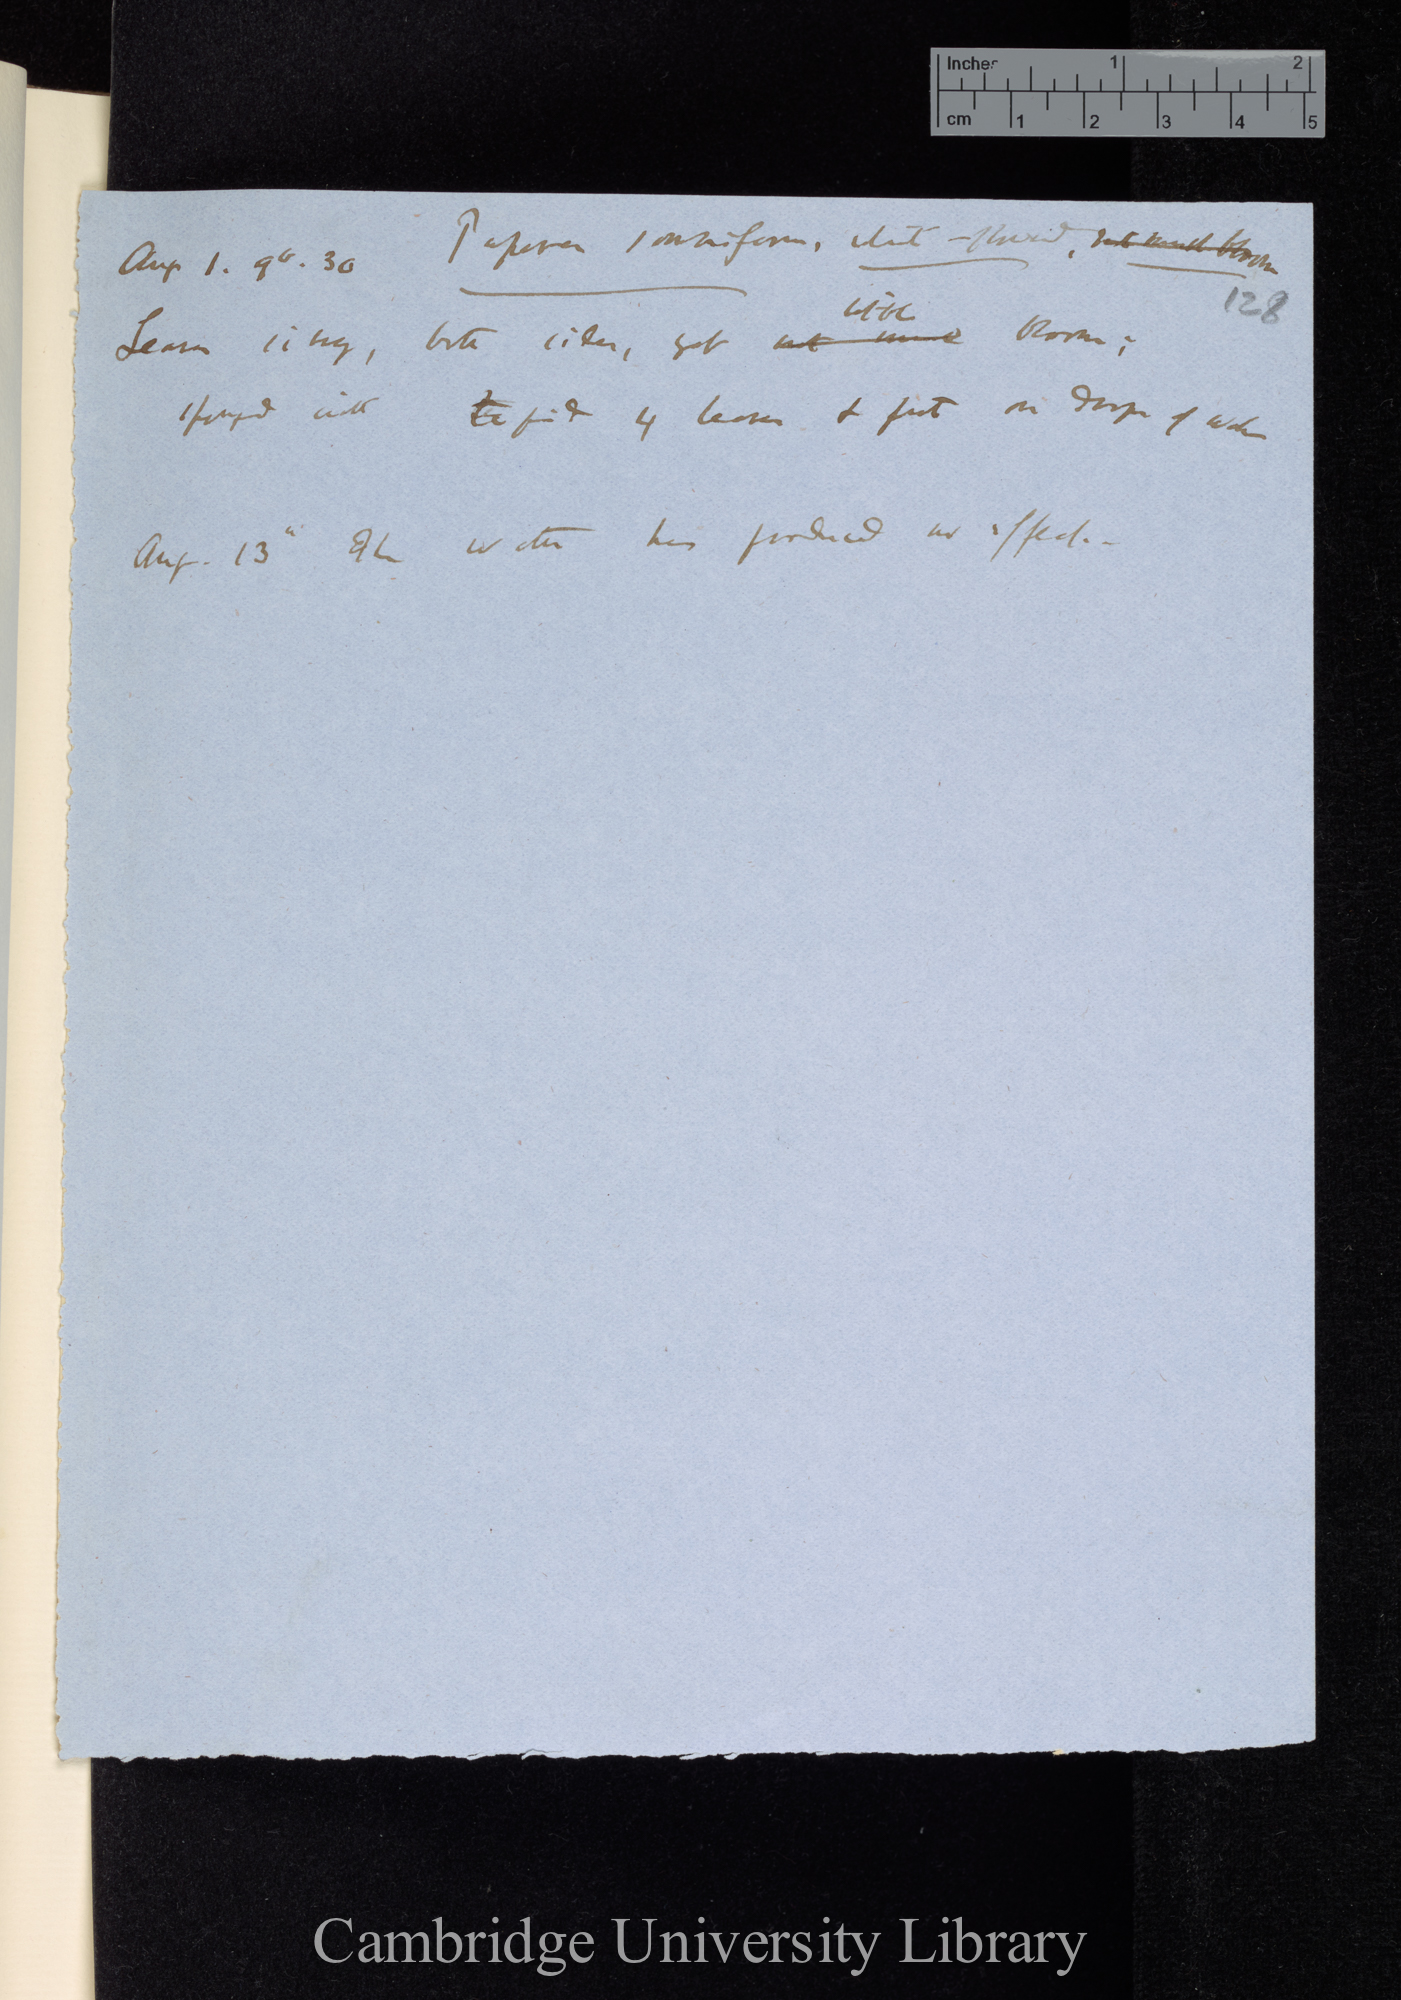 Inches 1 2
cm 1 2 3 4 5
Aug 1. 9°. 30 Papaver somniferum, white-flowered, not much bloom
128
little
Leaves shiny, both sides, yet not much bloom;
sponged with Tepid 4 leaves & put on drops of water
Aug. 13th The water has produced no effect.—
Cambridge University Library